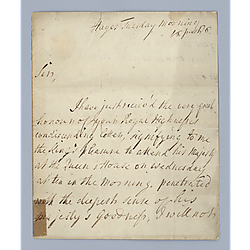 Hayes Tuesday Morning
Sir,
I have just receiv'd the very great
honour of your Royal Highness's
condescending Letter, signifying to me
the King's Pleasure to attend his Majesty
at the Queen's House on Wednesday
at ten in the Morning. penetrated
with the deepest sense of His
Majesty's Goodness, I will not